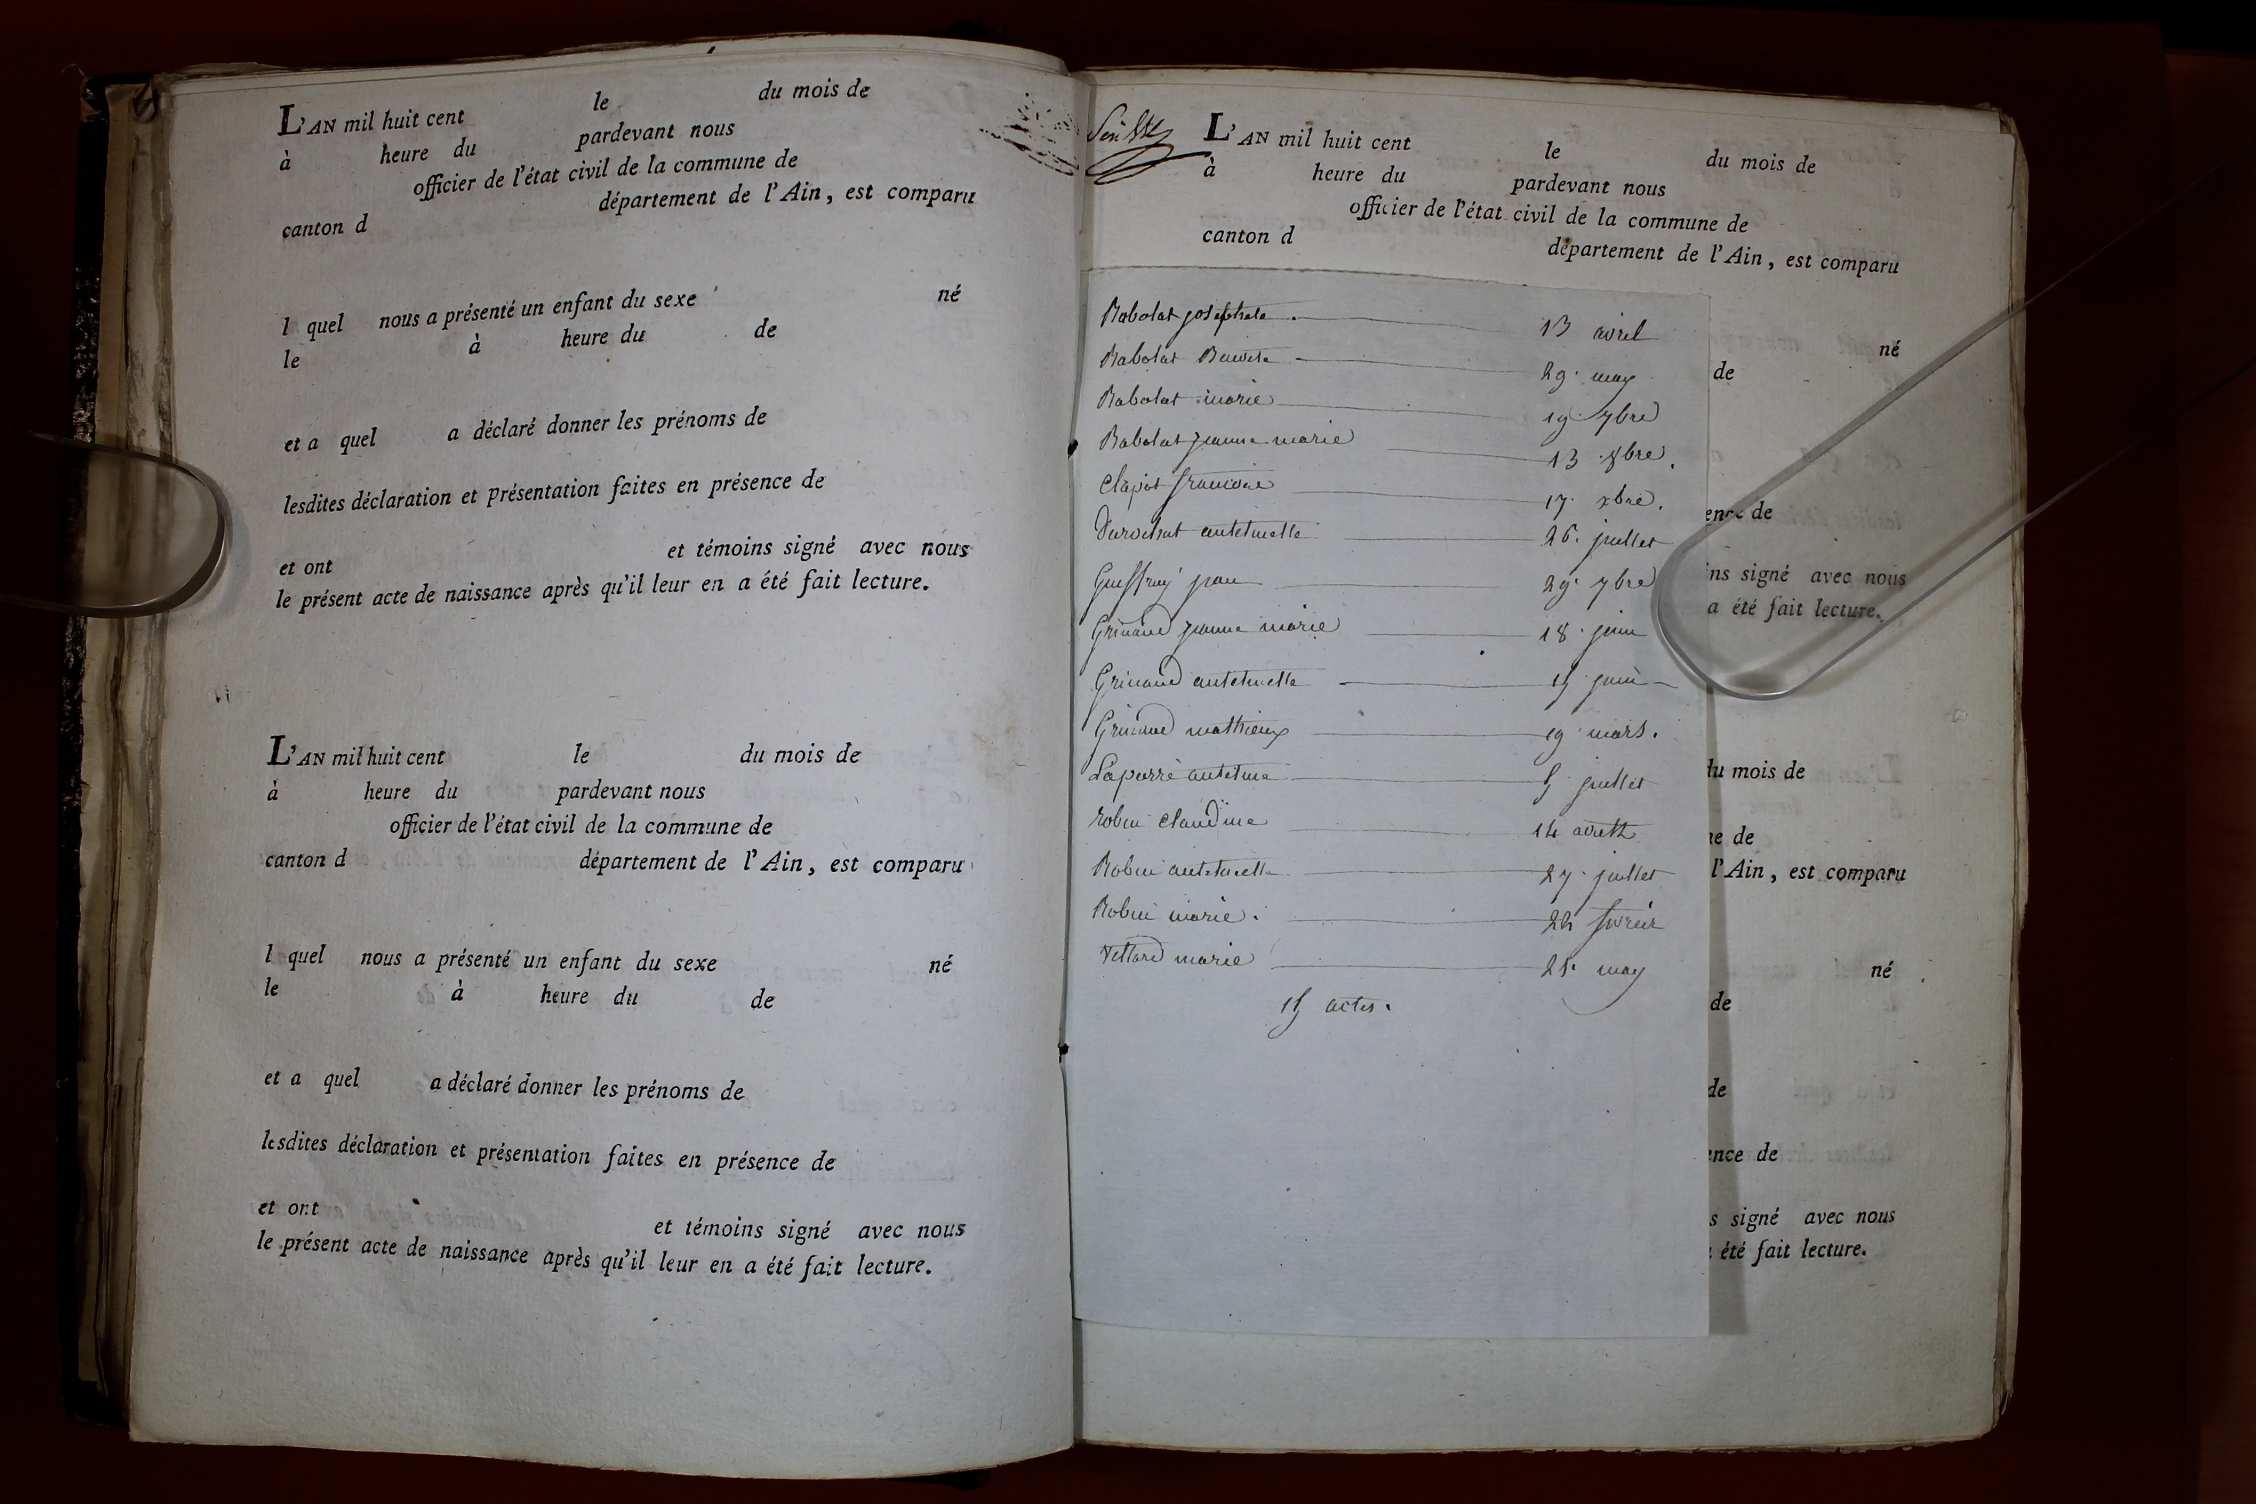 L'AN mil huit cent le du mois de
à heure du pardevant nous
officier de l'état civil de la commune de
canton d département de l'Ain, est comparu
l quel nous a présenté un enfant du sexe né
le à heure du de
et a quel a déclaré donner les prénoms de
lesdites déclaration et présentation faites en présence de
et ont et témoins signé avec nous
le présent acte de naissance après qu'il leur en a été fait lecture.
L'AN mil huit cent le du mois de
à heure du pardevant nous
officier de l'état civil de la commune de
canton d département de l'Ain, est comparu
l quel nous a présenté un enfant du sexe né
le à heure du de
et a quel a déclaré donner les prénoms de
lesdites déclaration et présentation faites en présence de
et ont et témoins signé avec nous
le présent acte de naissance après qu'il leur en a été fait lecture.
L'AN mil huit cent le du mois de
à heure du pardevant nous
officier de l'état civil de la commune de
canton d département de l'Ain, est comparu
Babolat josephete. 13 avril
Babolat Benoite 29. may
Babolat marie 19. 7bre
Babolat jeanne marie 13 8bre.
Clapot francoise 17. xbre.
antoinette 26. juillet
Gueffray jean 29. 7bre
Grinand jeanne marie 18. juin
Grinand antoinette 15 juin
Grinand mathieux 19 mars.
antoine 5 juillet
Robin Claudine 14 avril
Robin antoinette 27. juillet
Robin marie. 22 fevrier
Vettard marie 25. may
15 actes.
né
de
ence de
ins signé avec nous
a été fait lecture.
du mois de
ne de
l'Ain, est comparu
né
de
de
ence de
s signé avec nous
été fait lecture.